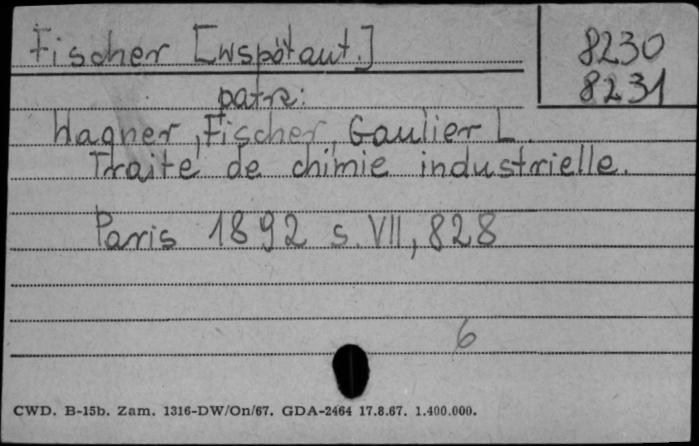 Fischer [współaut.]
8230
8231
patrz:
Wagner, Fischer, Gaulier L.
Traité de chimie industrielle.
Paris 1892 s. VII, 828
6
CWD. B-15b. Zam. 1316-DW/On/67. GDA-2464 17.8.67. 1.400.000.